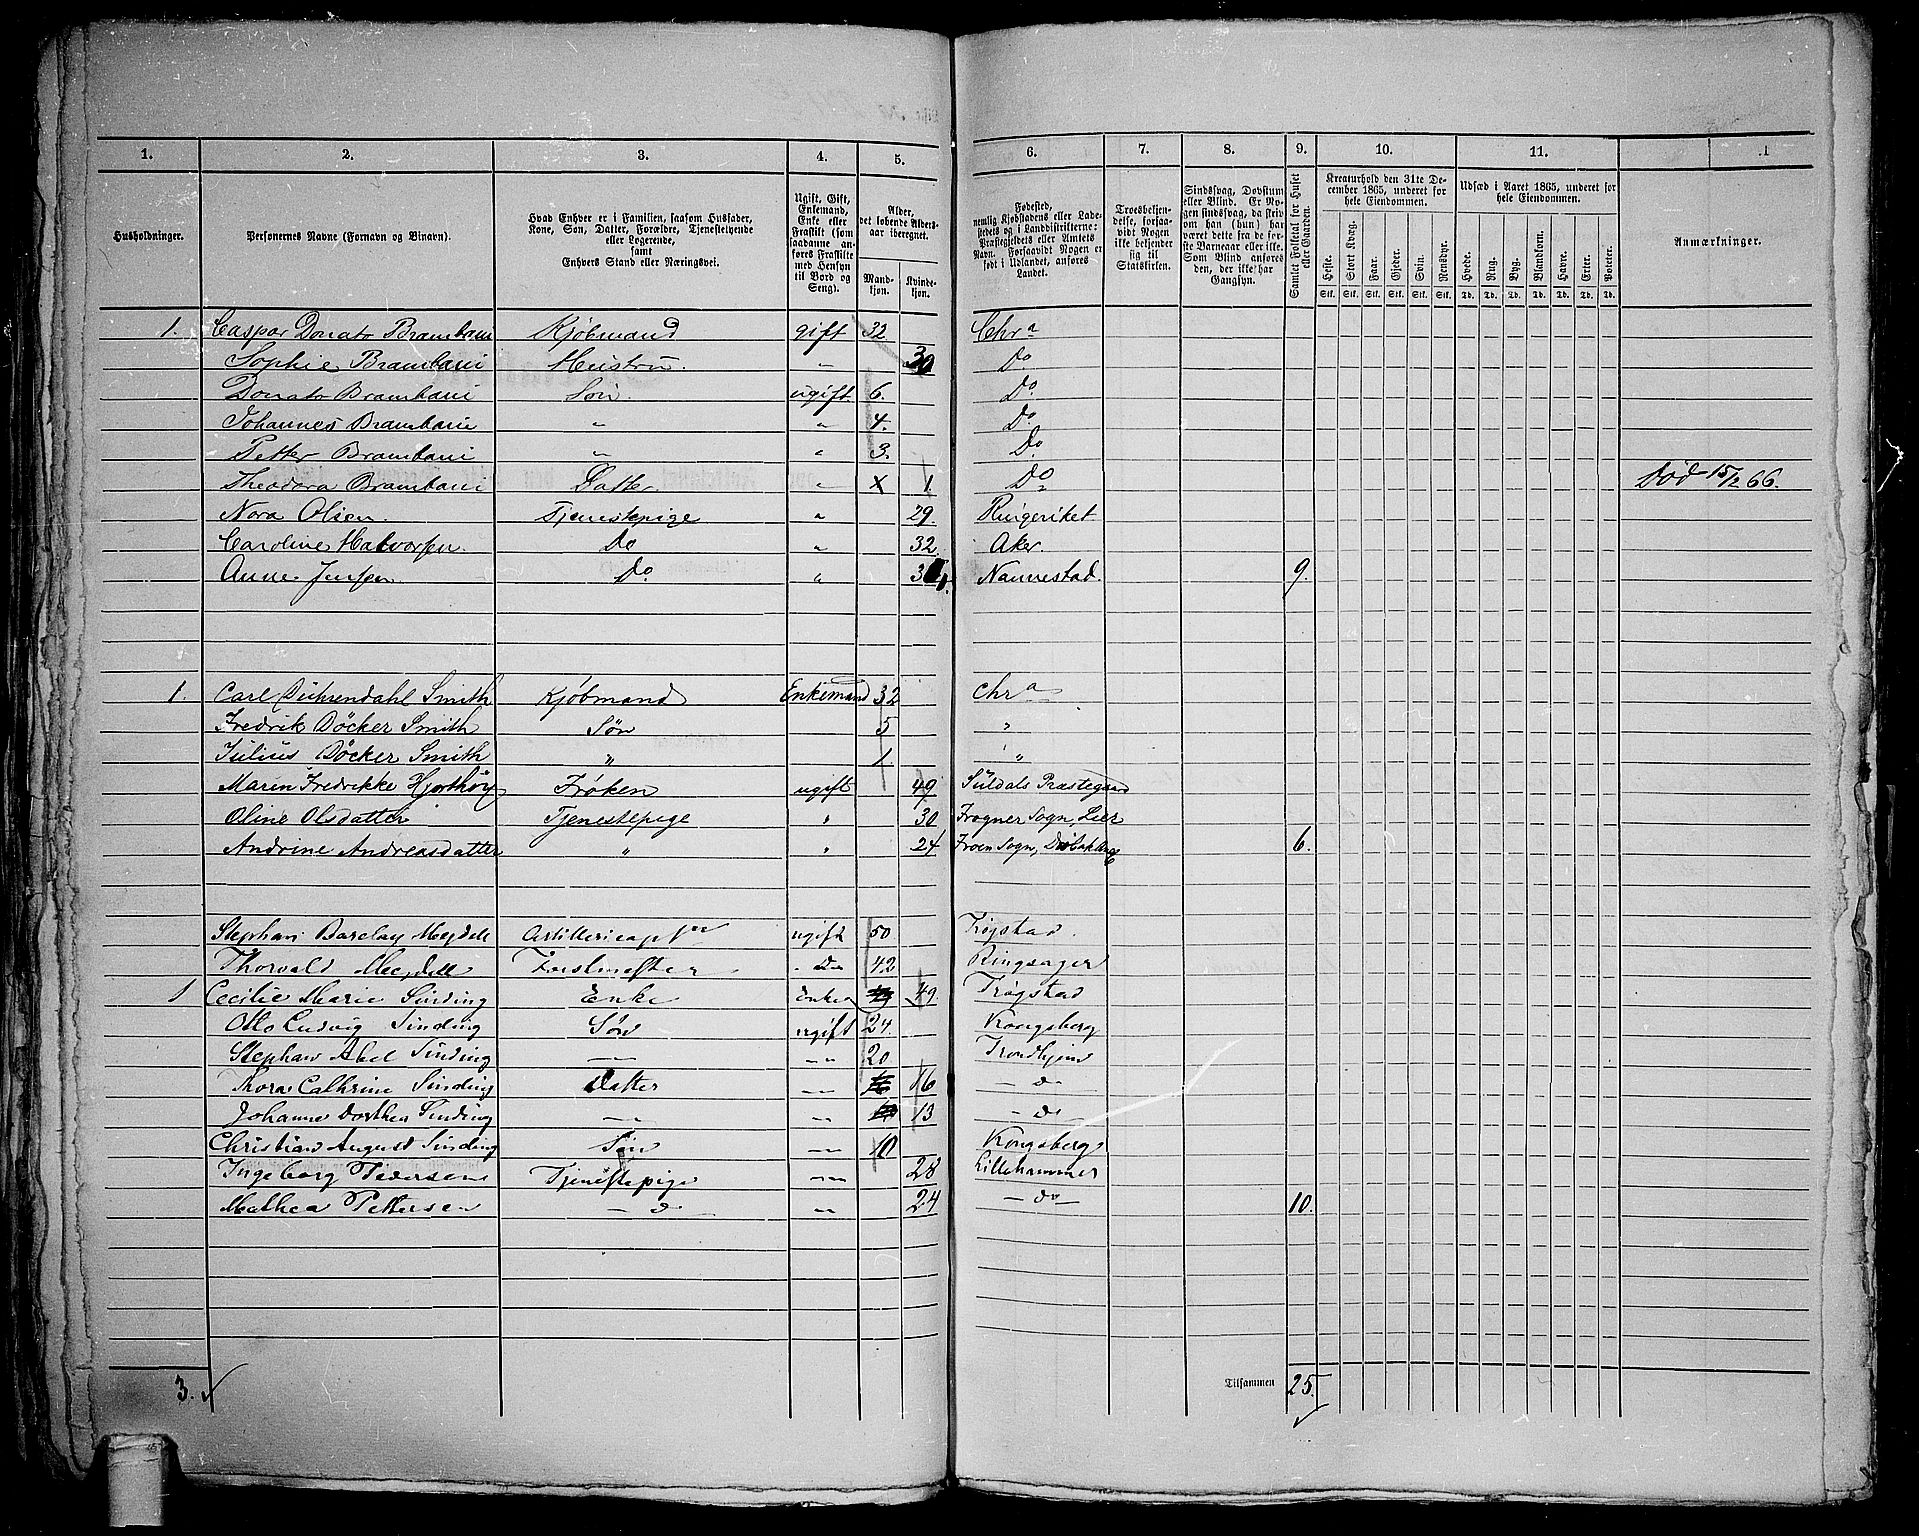 1. 2. 3. 4. 5. 6. 7. 8. 9. 10. 11. 1
Husholdninger.
Personernes Navne (Fornavn og Binavn).
Hvad Enhver er i Familien, saasom Husfader,
Kone, Søn, Datter, Forældre, Tjenestetyende
eller Logerende,
samt
Enhvers Stand eller Næringsvei.
Ugift, Gift,
Enkemand,
Enke eller
Fraskilt (som
saadanne an-
føres Fraskilte
med Hensyn
til Bord og
Seng).
Alder,
det løbende Alders-
aar iberegnet.
Mand-
kjøn.
Kvinde-
kjøn.
Fødested,
nemlig Kjøbstadens eller Lade-
stedets og i Landdistrikterne:
Præstegjeldets eller Amtets
Navn. Forsaavidt Nogen er
født i Udlandet, anføres
Landet.
Troesbekjen-
delse, forsaa-
vidt Nogen
ikke bekjender
sig til
Statskirken.
Sindssvag, Døvstum
eller Blind. Er No-
gen sindssvag, da skriv
om han (hun) har
været dette fra de før-
ste Barneaar eller ikke.
Som Blind anføres
den, der ikke har
Gangsyn.
Samlet Folketal for Huset
eller Gaarden.
Kreaturhold den 31te De-
cember 1865, underet for
hele Eiendommen.
Heste. Stort Kvæg. Faar. Gjeder. Svin. Rensdyr.
Stk. Stk. Stk. Stk. Stk. Stk.
Udsæd i Aaret 1865, underet for
hele Eiendommen.
Hvede. Rug. Byg. Blandkorn. Havre. Erter. Poteter.
Td. Td. Td. Td. Td. Td. Td.
Anmærkninger.
1. Caspar Donato Brambani Kjøbmand gift 32 Chr a
Sophie Brambani Hustru. " 30 Do
Donato Brambani Søn. ugift. 6. Do.
Johannes Brambani " " 4. Do
Petter Brambani " " 3. Do
Theodora Brambani Datter. " x 1. Do Død 15/2 66.
Nora Olsen. Tjenestepige " 29. Ringeriket.
Caroline Halvorsen. Do " 32. Aker.
Anne Jensen Do. " Nannestad. 9.
1. Carl Duhrendahl Smith Kjøbmand Enkemand 32 Chr a
Fredrik Döcker Smith Søn 5 "
Julius Döcker Smith " 1. "
Maren Fredrikke Hjorthöy Frøken ugift 49 Suldals Præstegaard
Oline Olsdatter Tjenestepige " 30 Frogner Sogn, Lier
Andrine Andreasdatter " " 24 Froen Sogn, 6.
Stephan Barclay Mejdell Artillericapt ugift 50 Trøgstad.
Thorvald Mejdell Forstmester - Do 42 Ringsager
1 Cecilie Marie Sinding Enke Enke 49. Trøgstad
Otto Ludvig Sinding Søn ugift 24. Kongsberg
Stephan Abel Sinding — " 20 Trondhjem
Thora Cathrine Sinding Datter — 16 — d —
Johanne Dorthea Sinding — — 13 — do —
Christian August Sinding Søn — 10 Kongsberg
Ingeborg Pedersen Tjenestepige — 28 Lillehammer
Mathea Pettersen — d — — 24 — do — 10.
3. ✓ Tilsammen 25. ✓